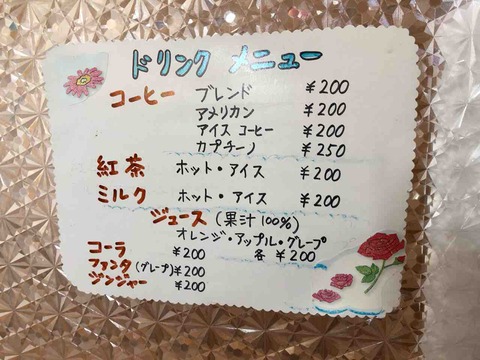 ドリンク メニュー
コーヒー ブレンド ¥200
アメリカン ¥200
アイス コーヒー ¥200
カプチーノ ¥250
紅茶 ホット・アイス ¥200
ミルク ホット・アイス ¥200
ジュース (果汁100%)
オレンジ・アップル・グレープ
各 ¥200
コーラ ¥200
ファンタ (グレープ) ¥200
ジンジャー ¥200